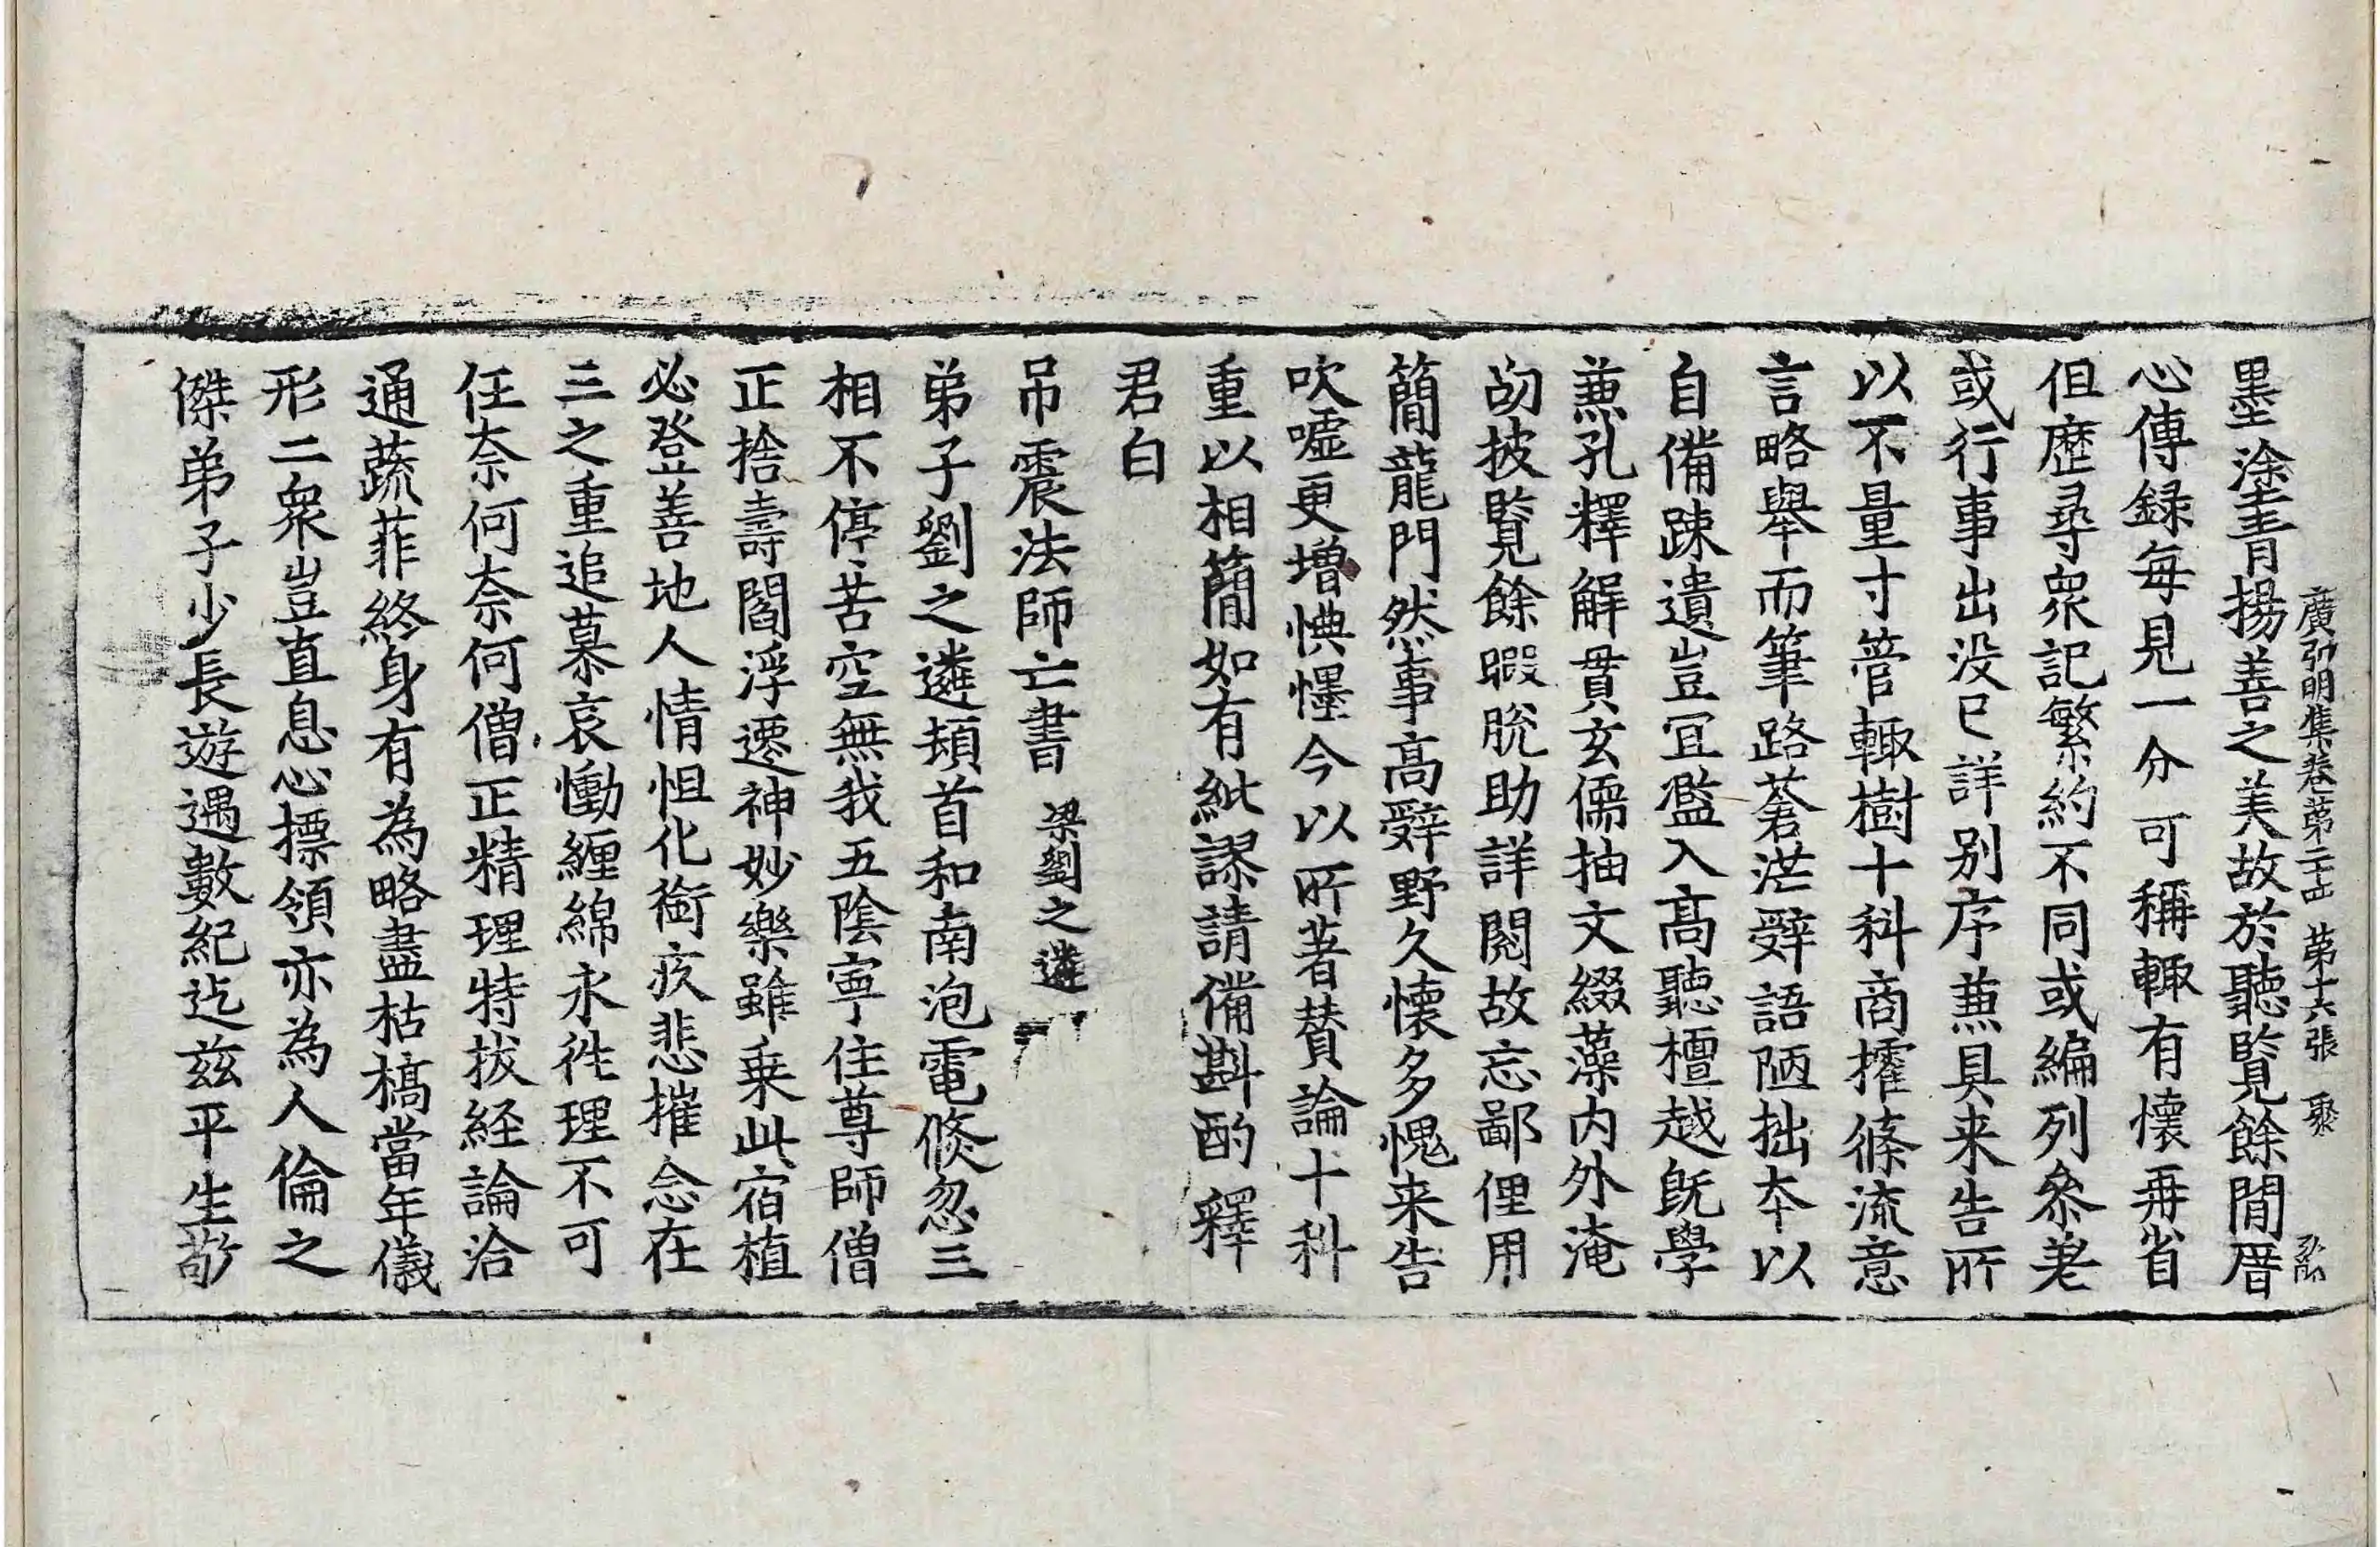 廣弘明集卷第二十四 第十六張 聚
墨塗青揚善之美故於聽覽餘閒厝
心傳録每見一分可稱輙有懷再省
但歷尋衆記繁約不同或編列叅差
或行事出没已詳别序兼具来告所
以不量寸管輙樹十科商搉條流意
言略舉而筆路蒼茫辤語陋拙本以
自備踈遺豈冝濫入髙聽檀越旣學
兼孔釋解貫玄儒抽文綴藻内外淹
劭披覽餘暇脱助詳閱故忘鄙俚用
簡龍門然事髙辤野久懷多愧来告
吹嘘更增愧懼今以所著賛論十科
重以相簡如有紕謬請備斟酌釋
君白
吊震法師亡書 梁劉之遴
弟子劉之遴頓首和南泡電倐忽三
相不停苦空無我五陰寧住尊師僧
正捨壽閻浮遷神妙樂雖乗此宿植
必登善地人情怛化銜疚悲摧念在
三之重追慕哀慟纏綿永徃理不可
任奈何奈何僧正精理特拔經論洽
通蔬菲終身有為略盡枯槁當年儀
形二衆豈直息心摽領亦為人倫之
傑弟子少長遊遇數紀迄兹平生敬